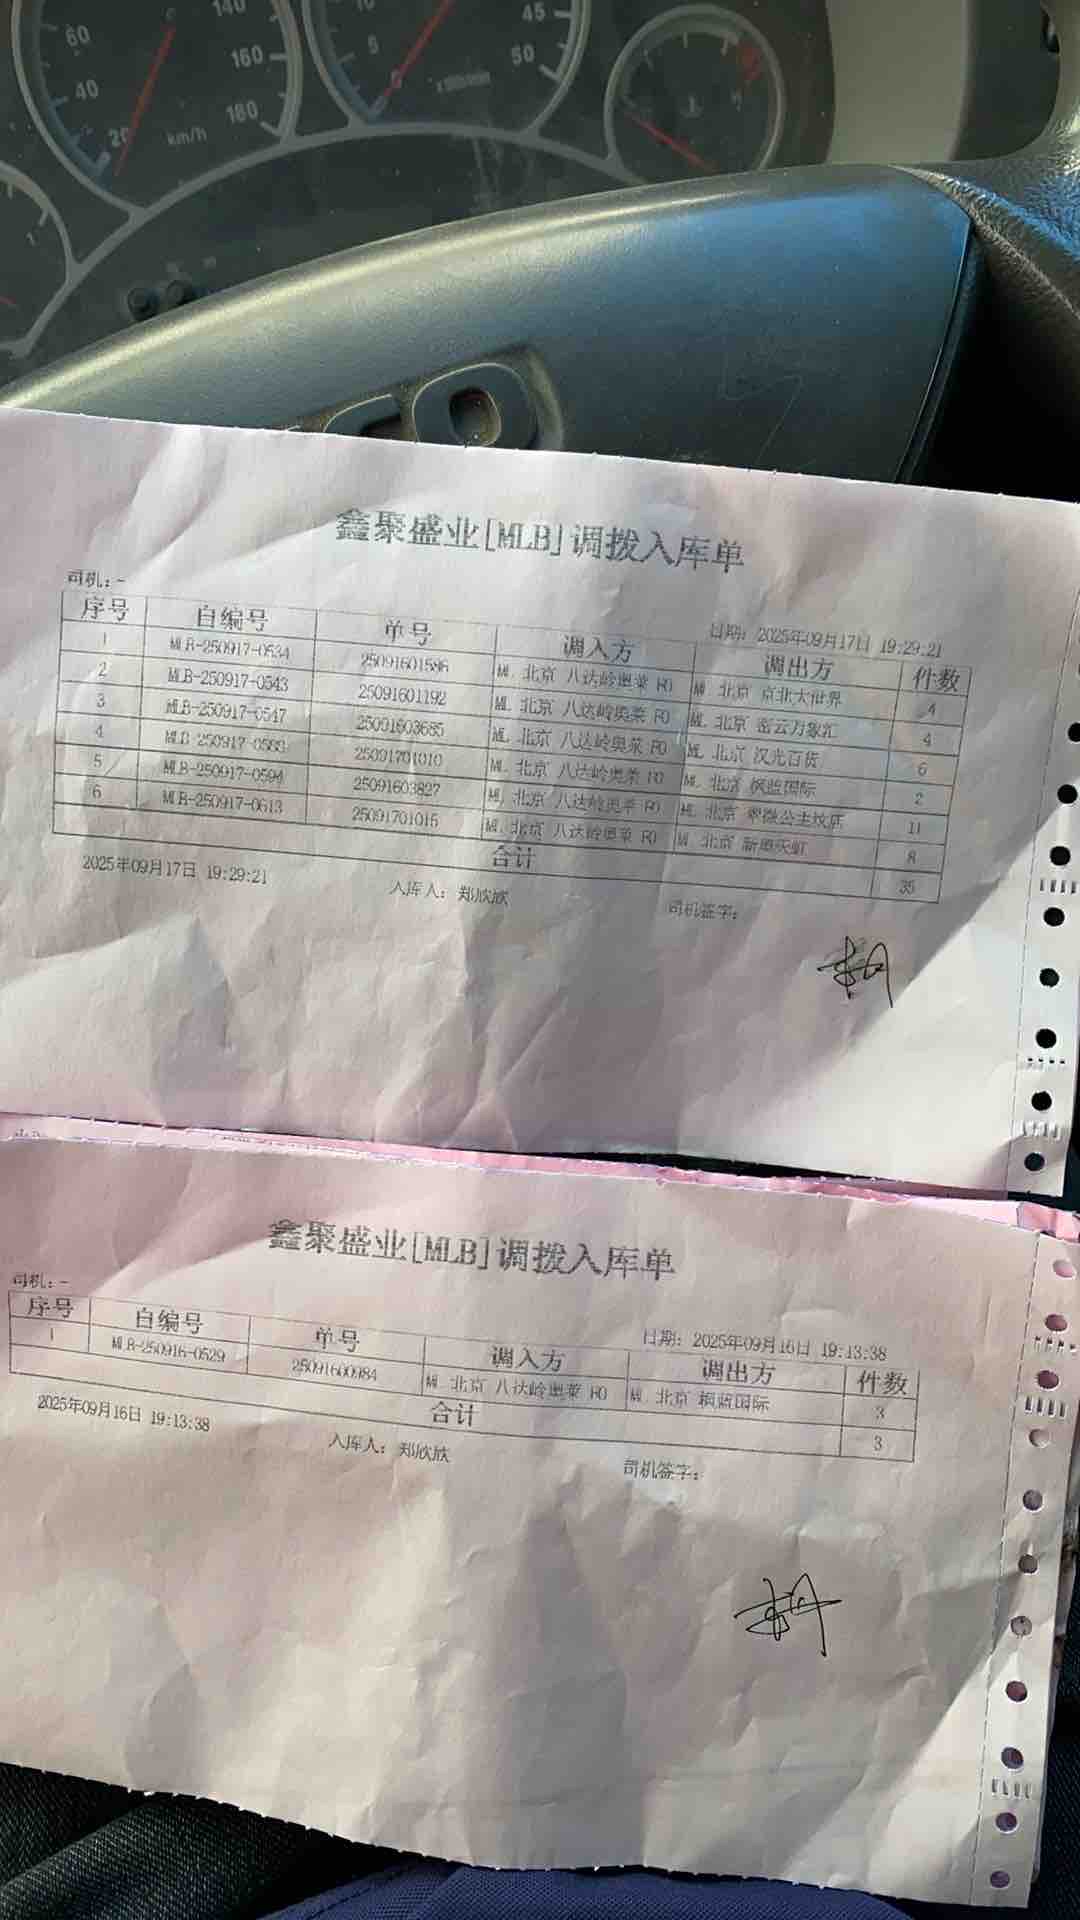 60
40
20
140
160
180
km/h
10
5
45
50
x100r/min
鑫聚盛业[MLB]调拨入库单
司机:-
日期: 2025年09月17日 19:29:21
序号 自编号 单号 调入方 调出方 件数
1 MLB-250917-0534 25091601586 ML. 北京 八达岭奥莱 FO ML. 北京 京北大世界 4
2 MLB-250917-0543 25091601192 ML. 北京 八达岭奥莱 FO ML. 北京 密云万象汇 4
3 MLB-250917-0547 25091603685 ML. 北京 八达岭奥莱 FO ML. 北京 汉光百货 6
4 25091701010 ML. 北京 八达岭奥莱 FO ML. 北京 枫蓝国际 2
5 MLB-250917-0594 25091603827 ML. 北京 八达岭奥莱 FO ML. 北京 翠微公主坟店 11
6 MLB-250917-0613 25091701015 ML. 北京 八达岭奥莱 FO ML. 北京 新奥天虹 8
合计 35
2025年09月17日 19:29:21 入库人: 郑欣欣 司机签字:
鑫聚盛业[MLB]调拨入库单
司机:-
日期: 2025年09月16日 19:13:38
序号 自编号 单号 调入方 调出方 件数
1 MLB-250916-0529 25091600984 ML. 北京 八达岭奥莱 FO ML. 北京 枫蓝国际 3
合计 3
2025年09月16日 19:13:38 入库人: 郑欣欣 司机签字: